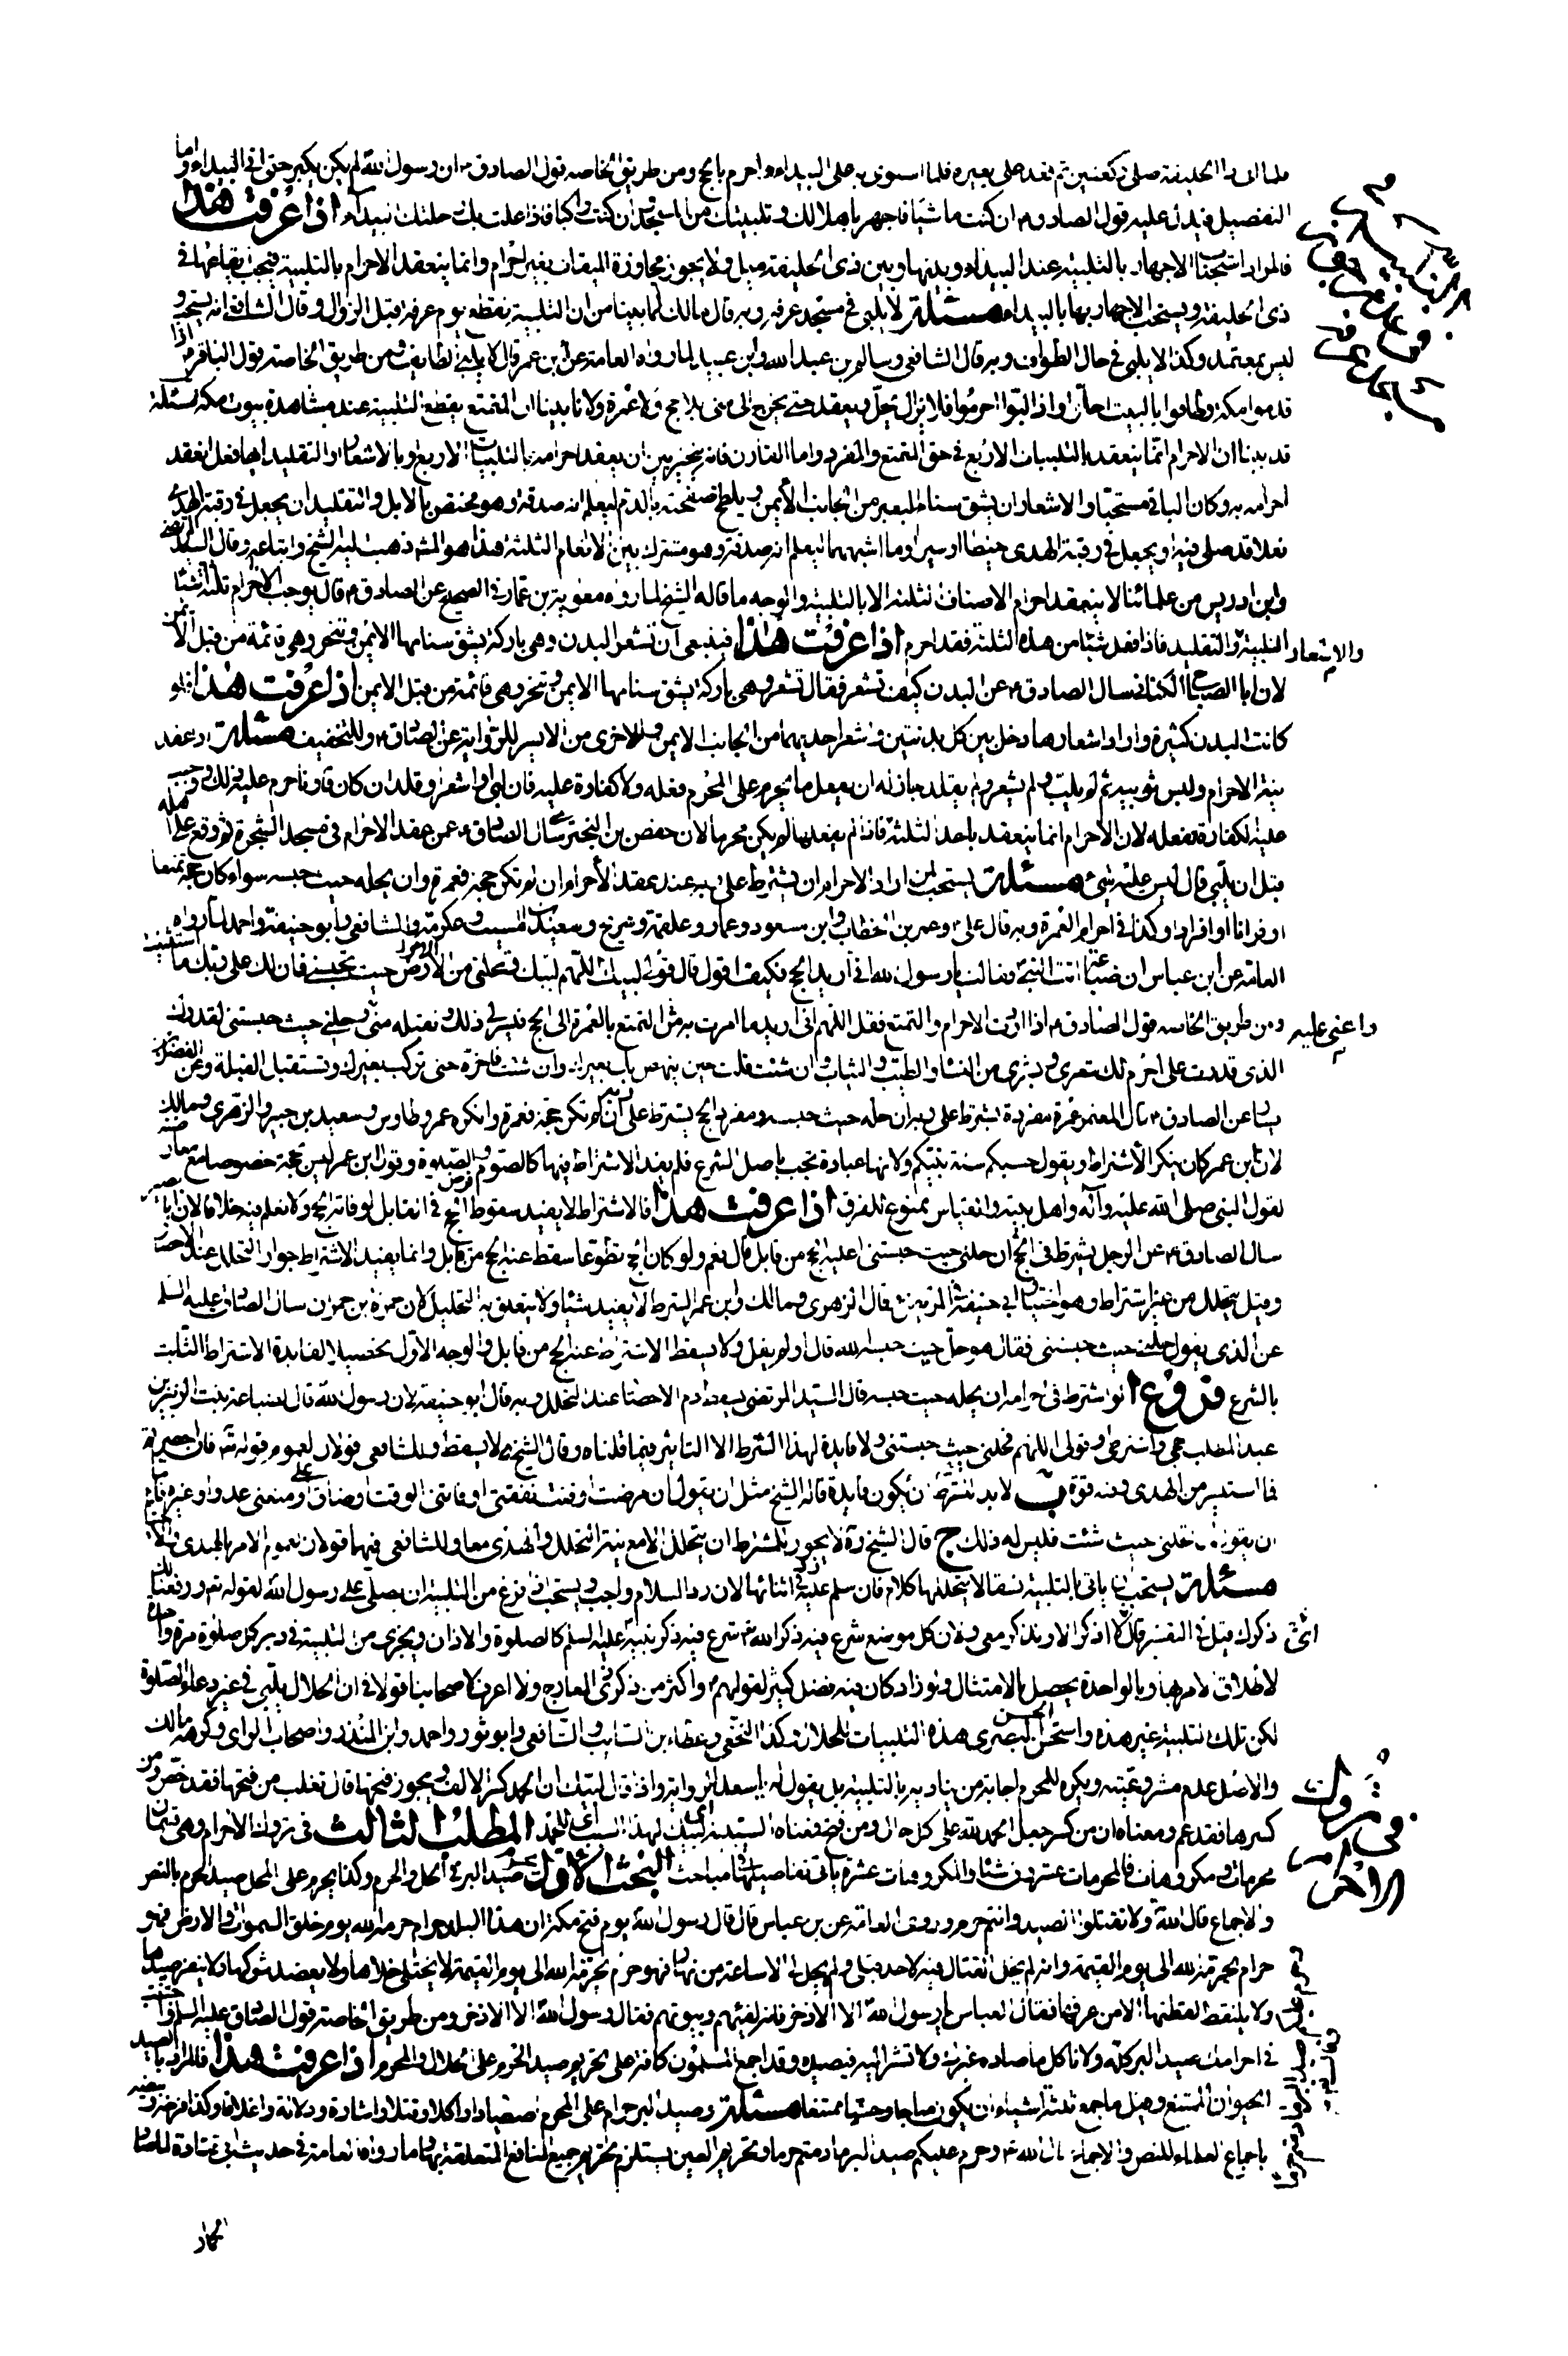 فلما اتى ذا الحليفة صلى ركعتين ثم قعد على بعيره فلما استوى به على البيداء احرم بالحج ومن طريق الخاصة قول الصادق ع ان رسول الله لم يكن يكبر حتى اتى البيداء واما
التفصيل فيدل عليه قول الصادق ع ان كنت ماشيا فاجهر باهلالك وتلبيتك من المسجد وان كنت راكبا فاذا علت بك راحلتك البيداء اذا عرفت هذا
فالمراد استحباب الاجهار بالتلبية عند البيداء وبينها وبين ذى الحليفة ميل ولا يجوز مجاوزة الميقات بغير احرام وانما ينعقد الاحرام بالتلبية فيجب ايقاعها في
ذى الحليفة ويستحب الاجهار بها بالبيداء مسئلة لا يلبى في مسجد عرفة وبه قال مالك لما بينا من ان التلبية يقطع يوم عرفة قبل الزوال وقال الشافعي انه يستحب و
ليس بمعتمد وكذا لا يلبى في حال الطواف وبه قال الشافعي وسالم بن عبد الله وابن عيينة لما رواه العامة عن ابن عمر قال لا يلبى الطايف ومن طريق الخاصة قول الباقر ع اذا
قدموا مكة وطافوا بالبيت احلوا واذا لبوا احرموا فلا يزال يحل ويعقد حتى يخرج الى منى بلا حج ولا عمرة ولانا بينا ان المتمتع يقطع التلبية عند مشاهدة بيوت مكة مسئلة
قد بينا ان الاحرام انما ينعقد بالتلبيات الاربع في حق المتمتع والمفرد واما القارن فانه يتخير بين ان يعقد احرامه بالتلبيات الاربع وبالاشعار او التقليد ايها فعل انعقد
احرامه به وكان الباقي مستحبا والاشعار ان يشق سنام البعير من الجانب الايمن ويلطخ صفحته بالدم ليعلم انه صدقة وهو مختص بالابل والتقليد ان يجعل في رقبة الهدى
نعلا قد صلى فيه او يجعل في رقبة الهدى خيطا او سيرا وما اشبههما ليعلم انه صدقة وهو مشترك بين الانعام الثلثة هذا هو المش ذهب اليه الشيخ واتباعه وقال السيد المرتضى
وابن ادريس من علمائنا لا ينعقد احرام الاصناف الثلثة الا بالتلبية والوجه ما قاله الشيخ لما رواه معوية بن عمار في الصحيح عن الصادق ع قال يوجب الاحرام ثلثة اشياء
التلبية والاشعار والتقليد فاذا فعل شيئا من هذه الثلثة فقد احرم اذا عرفت هذا فينبغي ان تشعر البدن وهي باركة يشق سنامها الايمن وتنحر وهي قائمة من قبل الايمن
لان ابا الصباح الكناني سال الصادق ع عن البدن كيف تشعر فقال تشعر وهي باركة يشق سنامها الايمن وتنحر وهي قائمة من قبل الايمن اذا عرفت هذا فلو
كانت البدن كثيرة واراد اشعارها دخل بين كل بدنتين واشعر احديهما من الجانب الايمن والاخرى من الايسر للرواية عن الصادق ع وللتخفيف مسئلة لو عقد
نية الاحرام ولبس ثوبيه ثم لم يلب ولم يشعر ولم يقلد جاز له ان يفعل ما يحرم على المحرم فعله ولا كفارة عليه فان لبى او اشعر او قلد ان كان قارنا حرم عليه ذلك ووجب
عليه الكفارة بفعله لان الاحرام انما ينعقد باحد الثلثة فاذا لم يفعلها لم يكن محرما لان حفص بن البخترى سال الصادق ع عمن عقد الاحرام في مسجد الشجرة ثم وقع على اهله
قبل ان يلبى قال ليس عليه شئ مسئلة يستحب لمن اراد الاحرام ان يشترط على ربه عند عقد الاحرام ان لم تكن حجة فعمرة وان يحله حيث حبسه سواء كان حجه تمتعا
او قرانا او افرادا وكذا في احرام العمرة وبه قال على ع وعمر بن الخطاب وابن مسعود وعمار وعلقمة وشريح وسعيد بن المسيب وعكرمة والشافعي وابو حنيفة واحمد لما رواه
العامة عن ابن عباس ان ضباعة اتت النبي فقالت يا رسول الله اني اريد الحج فكيف اقول قال قولى لبيك اللهم لبيك ومحلى من الارض حيث تحبسنى فان لك على ربك ما استثنيت
ومن طريق الخاصه قول الصادق ع اذا اردت الاحرام والتمتع فقل اللهم انى اريد ما امرت به من التمتع بالعمرة الى الحج فيسر لى ذلك وتقبله منى واعنى عليه وحلنى حيث حبستنى لقدرك
الذى قدرت على احرم لك شعرى وبشرى من النساء والطيب والثياب وان شئت قلت حين ينهض بك بعيرك وان شئت فاخره حتى تركب بعيرك وتستقبل القبلة وعن الفضيل بن
يسار عن الصادق ع قال المعتمر عمرة مفردة يشترط على ربه ان يحله حيث حبسه ومفرد الحج يشترط على ربه ان لم تكن حجة فعمرة وانكره عمر وطاوس وسعيد بن جبير والزهرى ومالك
لان ابن عمر كان ينكر الاشتراط ويقول حسبكم سنة نبيكم ولانها عبادة تجب باصل الشرع فلم يفد الاشتراط فيها كالصوم والصلوة وقول ابن عمر ليس بحجة خصوصا مع معارضته
لقول النبي صلى الله عليه وآله واهل بيته والقياس ممنوع للفرق اذا عرفت هذا فالاشتراط لا يفيد سقوط فرض الحج في القابل لو فاته الحج ولا نعلم فيه خلافا لان ابا بصير
سال الصادق ع عن الرجل يشترط في الحج ان حلنى حيث حبستنى اعليه الحج من قابل قال نعم ولو كان الحج تطوعا سقط عنه الحج من قابل وانما يفيد الاشتراط جواز التحلل عند الاحصار
وقيل يتحلل من غير اشتراط وهو اختيار ابي حنيفة في المريض قال الزهرى ومالك وابن عمر الشرط لا يفيد شيئا ولا يتعلق به التحليل لان حمزة بن حمران سال الصادق عليه السلم
عن الذى يقول حلنى حيث حبستنى فقال هو حل حيث حبسه الله قال او لم يقل ولا يسقط الاشتراط عنه الحج من قابل والوجه الاول تحصيلا لفايدة الاشتراط الثابت
بالشرع فروع ا لو اشترط في احرامه ان يحله حيث حبسه قال السيد المرتضى يسقط دم الاحصار عند التحلل وبه قال ابو حنيفة لان رسول الله قال لضباعة بنت الزبير بن
عبد المطلب حجى واشترطى وقولى اللهم فحلنى حيث حبستنى ولا فايدة لهذا الشرط الا التاثير فيما قلناه وقال الشيخ ره لا يسقط وللشافعي قولان لعموم قوله تع فان احصرتم
فما استيسر من الهدى وفيه قوة ب لا بد للشرط ان يكون فايدة قاله الشيخ مثل ان يقول ان مرضت او فنت نفقتى او فاتنى الوقت او ضاق على او منعنى عدو او غيره فاما
ان يقول ان تحلنى حيث شئت فليس له ذلك ج قال الشيخ ره لا يجوز للمشترط ان يتحلل الا مع نية التحلل والهدى معا وللشافعي فيهما قولان لعموم الامر بالهدى
مسئلة يستحب ان ياتى بالتلبية نسقا لا يتخللها كلام فان سلم عليه رد في اثنائها لان رد السلام واجب ويستحب اذا فرغ من التلبية ان يصلى على رسول الله لقوله تع ورفعنا لك
ذكرك قيل في التفسير قال لا اذكر الا وتذكر معى ولان كل موضع شرع فيه ذكر الله تع شرع فيه ذكر نبيه عليه السلم كالصلوة والاذان ويجزى من التلبية في دبر كل صلوة مرة واحدة
لاطلاق الامر بها وبالواحدة يحصل الامتثال ولو زاد كان فيه فضل كثير لقولهم ع واكثر من ذكر ذى المعارج ولا اعرف لاصحابنا قولا في ان الحلال يلبى في غير دعاء الصلوة
لكن تلك التلبية غير هذه واستحسن الحسن البصرى هذه التلبيات للحلال وكذا النخعي وعطاء بن السايب والشافعي وابو ثور واحمد وابن المنذر واصحاب الراى وكرهه مالك
والاصل عدم مشروعيته ويكره للمحرم اجابة من يناديه بالتلبية بل يقول له يا سعد للرواية واذا قال لبيك ان الحمد كسر الالف ويجوز فتحها قال ثعلب من فتحها فقد خص ومن
كسرها فقد عم ومعناه ان من كسر جعل الحمد لله على كل حال ومن فتح فمعناه لبيك لهذا السبب اى لان الحمد لك المطلب الثالث في تروك الاحرام وهي قسمان
محرمات ومكروهات فالمحرمات عشرون شيئا والمكروهات عشرة ياتى تفاصيلها في مباحث البحث الاول يحرم صيد البر في الحل والحرم وكذا يحرم على المحل صيد الحرم بالنص
والاجماع قال الله ولا تقتلوا الصيد وانتم حرم وروى العامة عن بن عباس قال قال رسول الله يوم فتح مكة ان هذا البلد حرام حرمه الله يوم خلق السموات والارض فهو
حرام بحرمة الله الى يوم القيمة وانه لم يحل القتال فيه لاحد قبلى ولم يحل لى الا ساعة من نهار فهو حرام بحرمة الله الى يوم القيمة لا يختلى خلاها ولا يعضد شوكها ولا ينفر صيدها
ولا يلتقط لقطتها الا من عرفها فقال العباس يا رسول الله الا الاذخر فانه لقينهم وبيوتهم فقال رسول الله الا الاذخر ومن طريق الخاصة قول الصادق عليه السلم واجتنب
في احرامك صيد البر كله ولا تاكل مما صاده غيرك ولا تشر اليه فيصيده وقد اجمع المسلمون كافة على تحريم صيد الحرم على الحلال والمحرم اذا عرفت هذا فالمراد بالصيد
الحيوان الممتنع وقيل ما جمع ثلثة اشياء ان يكون مباحا وحشيا ممتنعا مسئلة وصيد البر حرام على المحرم اصطيادا واكلا وقتلا واشارة ودلالة واغلاقا وكذا فرخه وبيضه
باجماع العلماء للنص والاجماع قال الله تع وحرم عليكم صيد البر ما دمتم حرما وتحريم العين يستلزم تحريم جميع المنافع المتعلقة بها وما رواه العامة في حديث ابى قتادة لما صاد
في تروك
الاحرام
الحمار